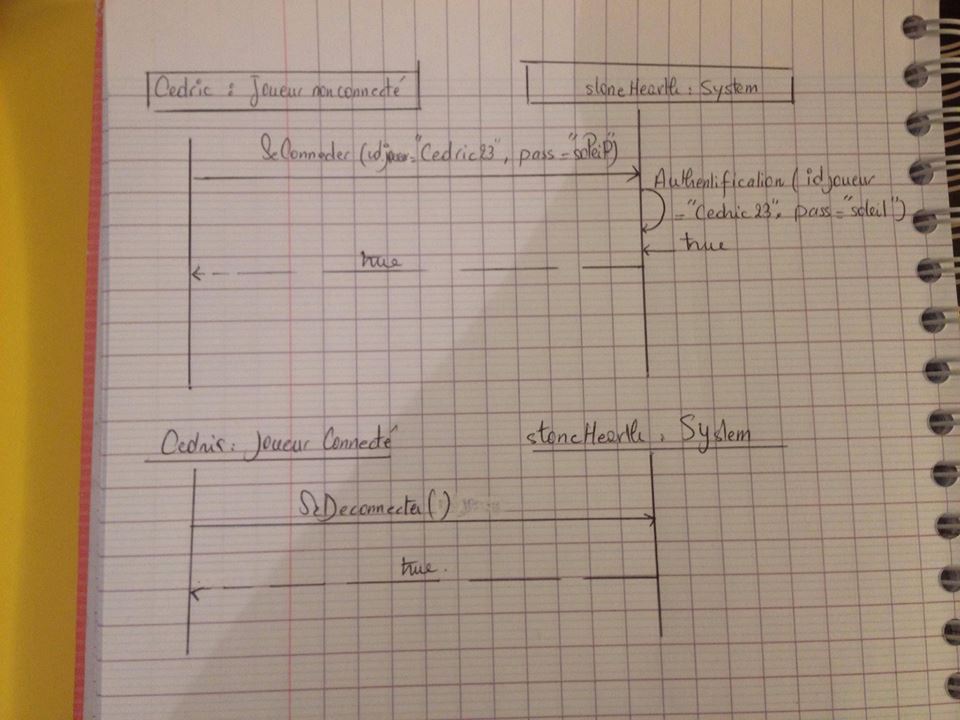 Cedric : Joueur non connecté
stoneHearth : System
SeConnecter (idjoueur="Cedric23", pass="soleil")
Authentification (idjoueur
="Cedric23", pass="soleil")
true
true
Cedric : Joueur Connecté
stoneHearth : System
SeDeconnecter()
true.